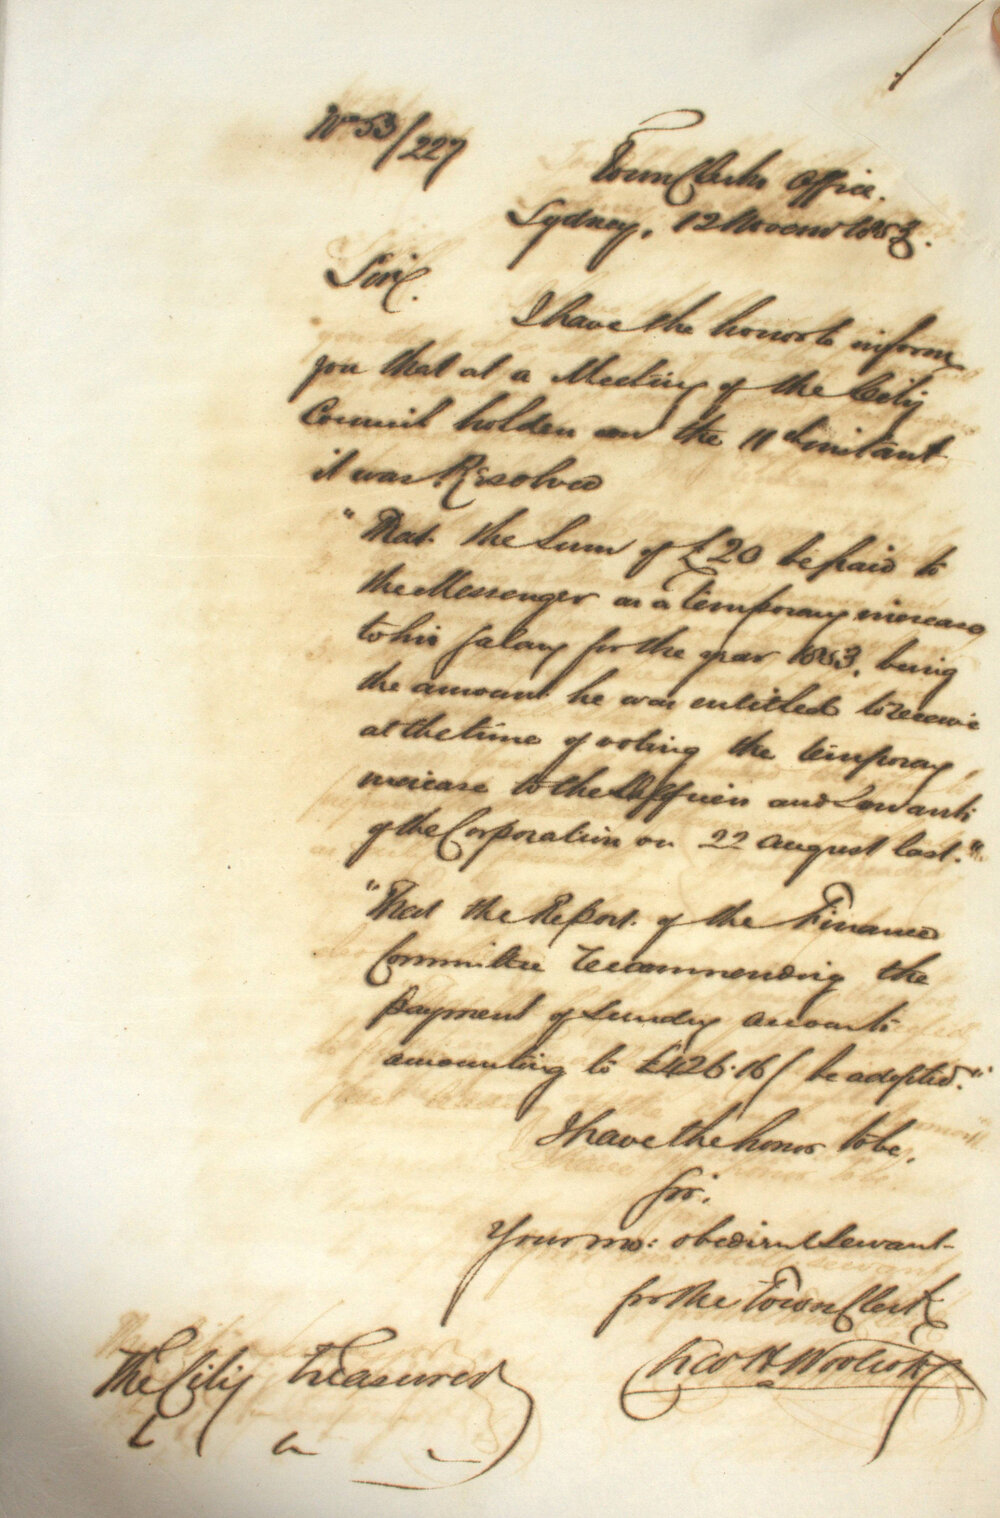 No 53/227
Town Clerks Office.
Sydney, 12 Novemr 1853.
Sir.
I have the honor to inform
you that at a Meeting of the City
Council holden on the 11th instant
it was Resolved
"That the Sum of £20 be paid to
the Messenger as a temporary increase
to his Salary for the year 1853, being
the amount he was entitled to receive
at the time of voting the temporary
increase to the Officers and Servants
of the Corporation on 22 August last."
"That the Report of the Finance
Committee recommending the
payment of Sundry amounts
amounting to £426.16/ be adopted."
I have the honor to be,
Sir,
Your mo: obedient Servant
for the Town Clerk
Geo H Woolcott
The City Treasurer